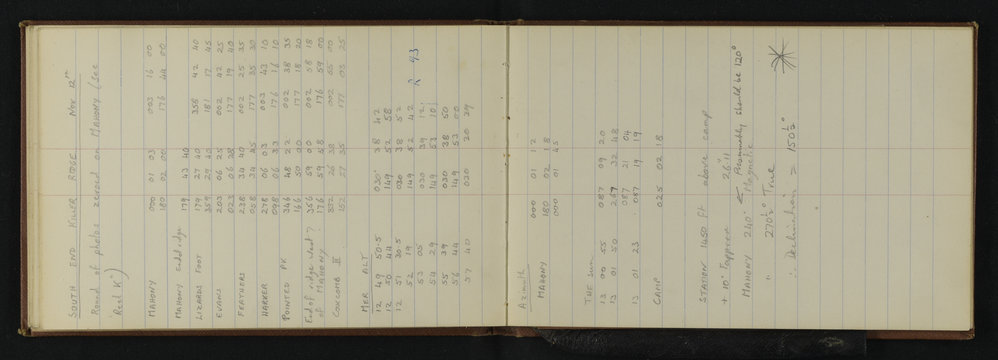 SOUTH END KILLER RIDGE Nov 12th
Round of photos zeroed on MAHONY (see
Reel K)
MAHONY 000 01 03 003 16 00
180 02 00 176 44 00
MAHONY End of ridge 179 43 40
LIZARDS FOOT 179 27 40 358 42 40
359 29 40 181 17 45
EVANS 203 06 25 002 42 25
023 06 28 177 19 40
FEATHERS 238 34 40 002 25 35
058 34 45 177 35 30
HARKER 278 06 03 003 43 10
098 06 33 176 16 10
POINTED PK 346 48 22 002 38 35
166 50 00 177 18 20
End of ridge west? 356 59 00 002 08 18
of MAHONY 176 59 58 176 59 00
COXCOMB II 332 26 38 002 55 00
152 27 35 177 03 25
MER ALT
12 49 50.5 030 38 42
12 50 44 149 52 58
12 51 30.5 030 38 52
52 19 149 52 42
53 05 030 39 12
54 29 149 53 10
55 39 030 38 50
56 44 149 53 00
57 40 030 20 29
R 93
Azimuth
MAHONY 000 01 12
180 02 18
000 01 45
THE sun
13 00 55 087 09 20
13 01 50 267 32 48
087 21 04
13 01 23 087 19 19
CAMP 025 02 18
STATION 1450 ft above camp
+ 10' Tapper 26"11
MAHONY 240° Magnetic < Presumably should be 120°
" 270½° True
∴ Declination = 150½°